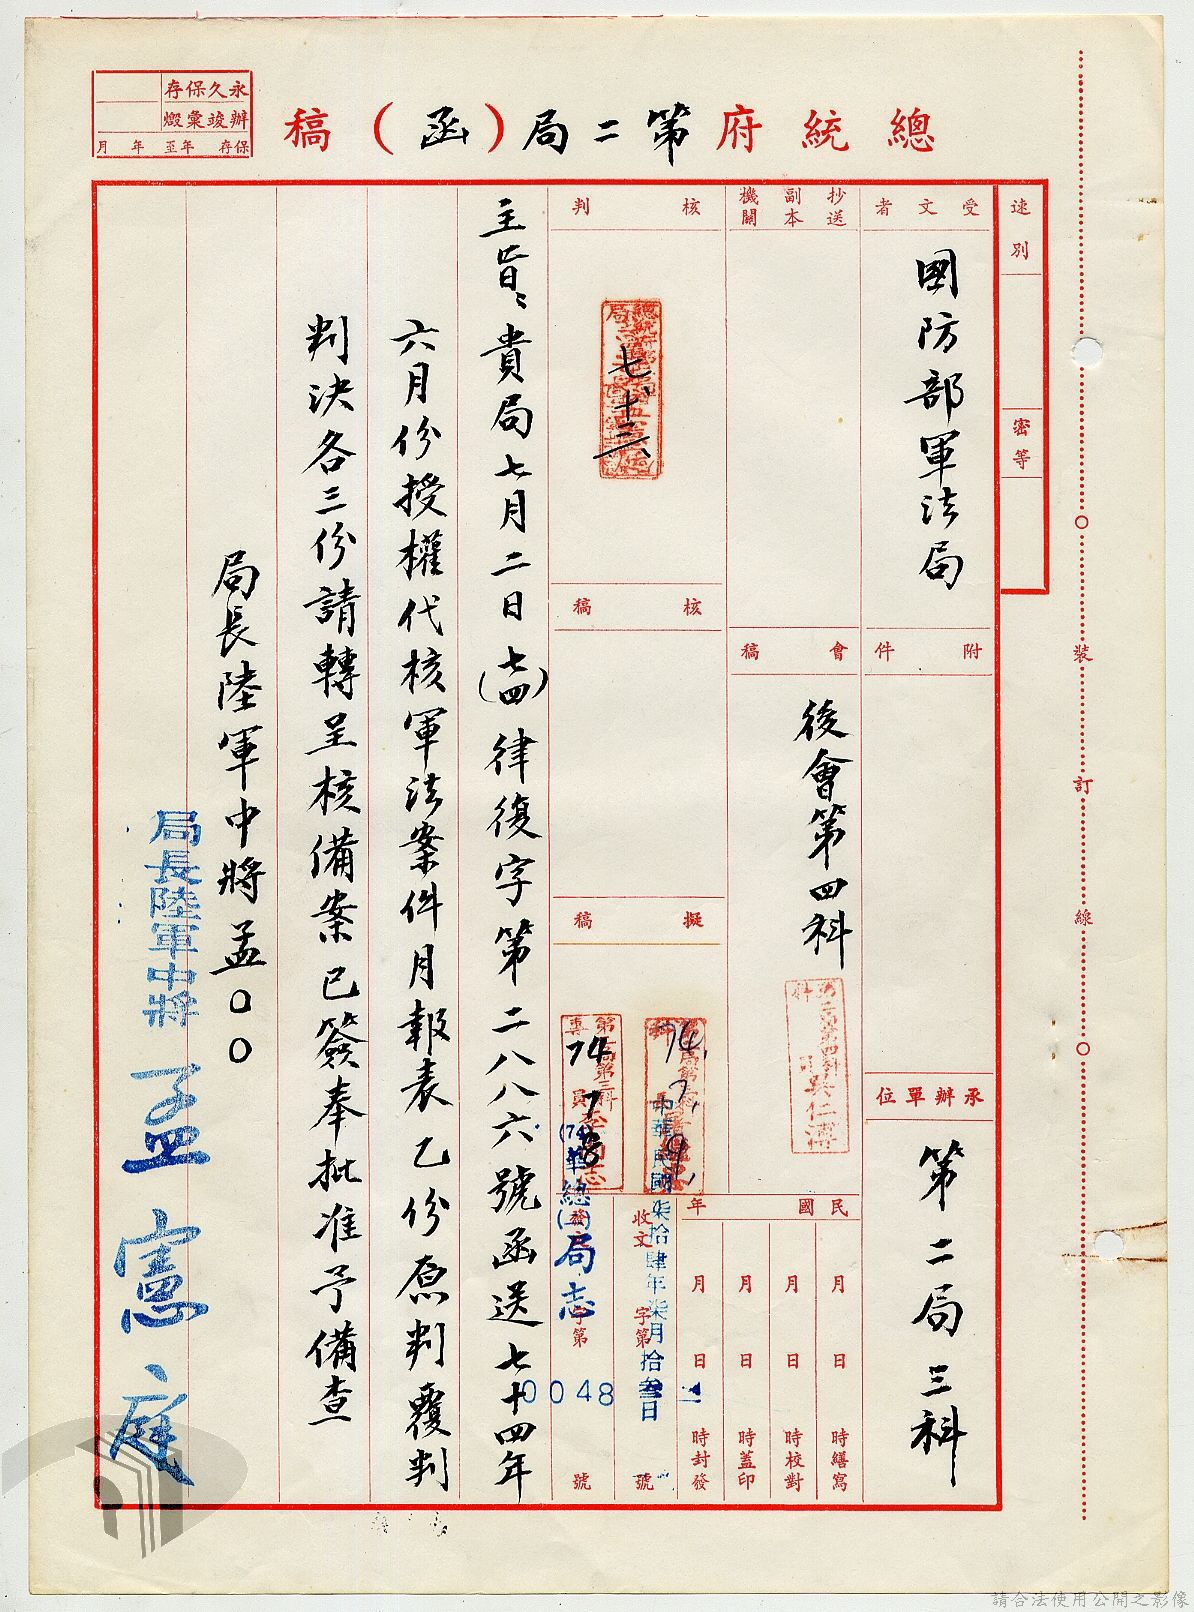 總統府第二局（函）稿
永久保存
辦竣彙燬
保存 年至 年 月
速別
密等
受文者
國防部軍法局
附件
承辦單位
第二局三科
抄送副本機關
會稿
後會第四科
第二局第四科
核判
七、十三、
核稿
擬稿
74.7.9.
74.7.8
民國 年
月 日 時繕寫
月 日 時校對
月 日 時蓋印
月 日 時封發
收文 字第 號
中華民國柒拾肆年柒月拾叁日
發 字第 號
(74)華總(二)局志
0048
主旨：貴局七月二日(七四)律復字第二八八六號函送七十四年
六月份授權代核軍法案件月報表乙份原判覆判
判決各三份請轉呈核備案已簽奉批准予備查
局長陸軍中將孟○○
局長陸軍中將 孟憲庭
裝訂線
請合法使用公開之影像